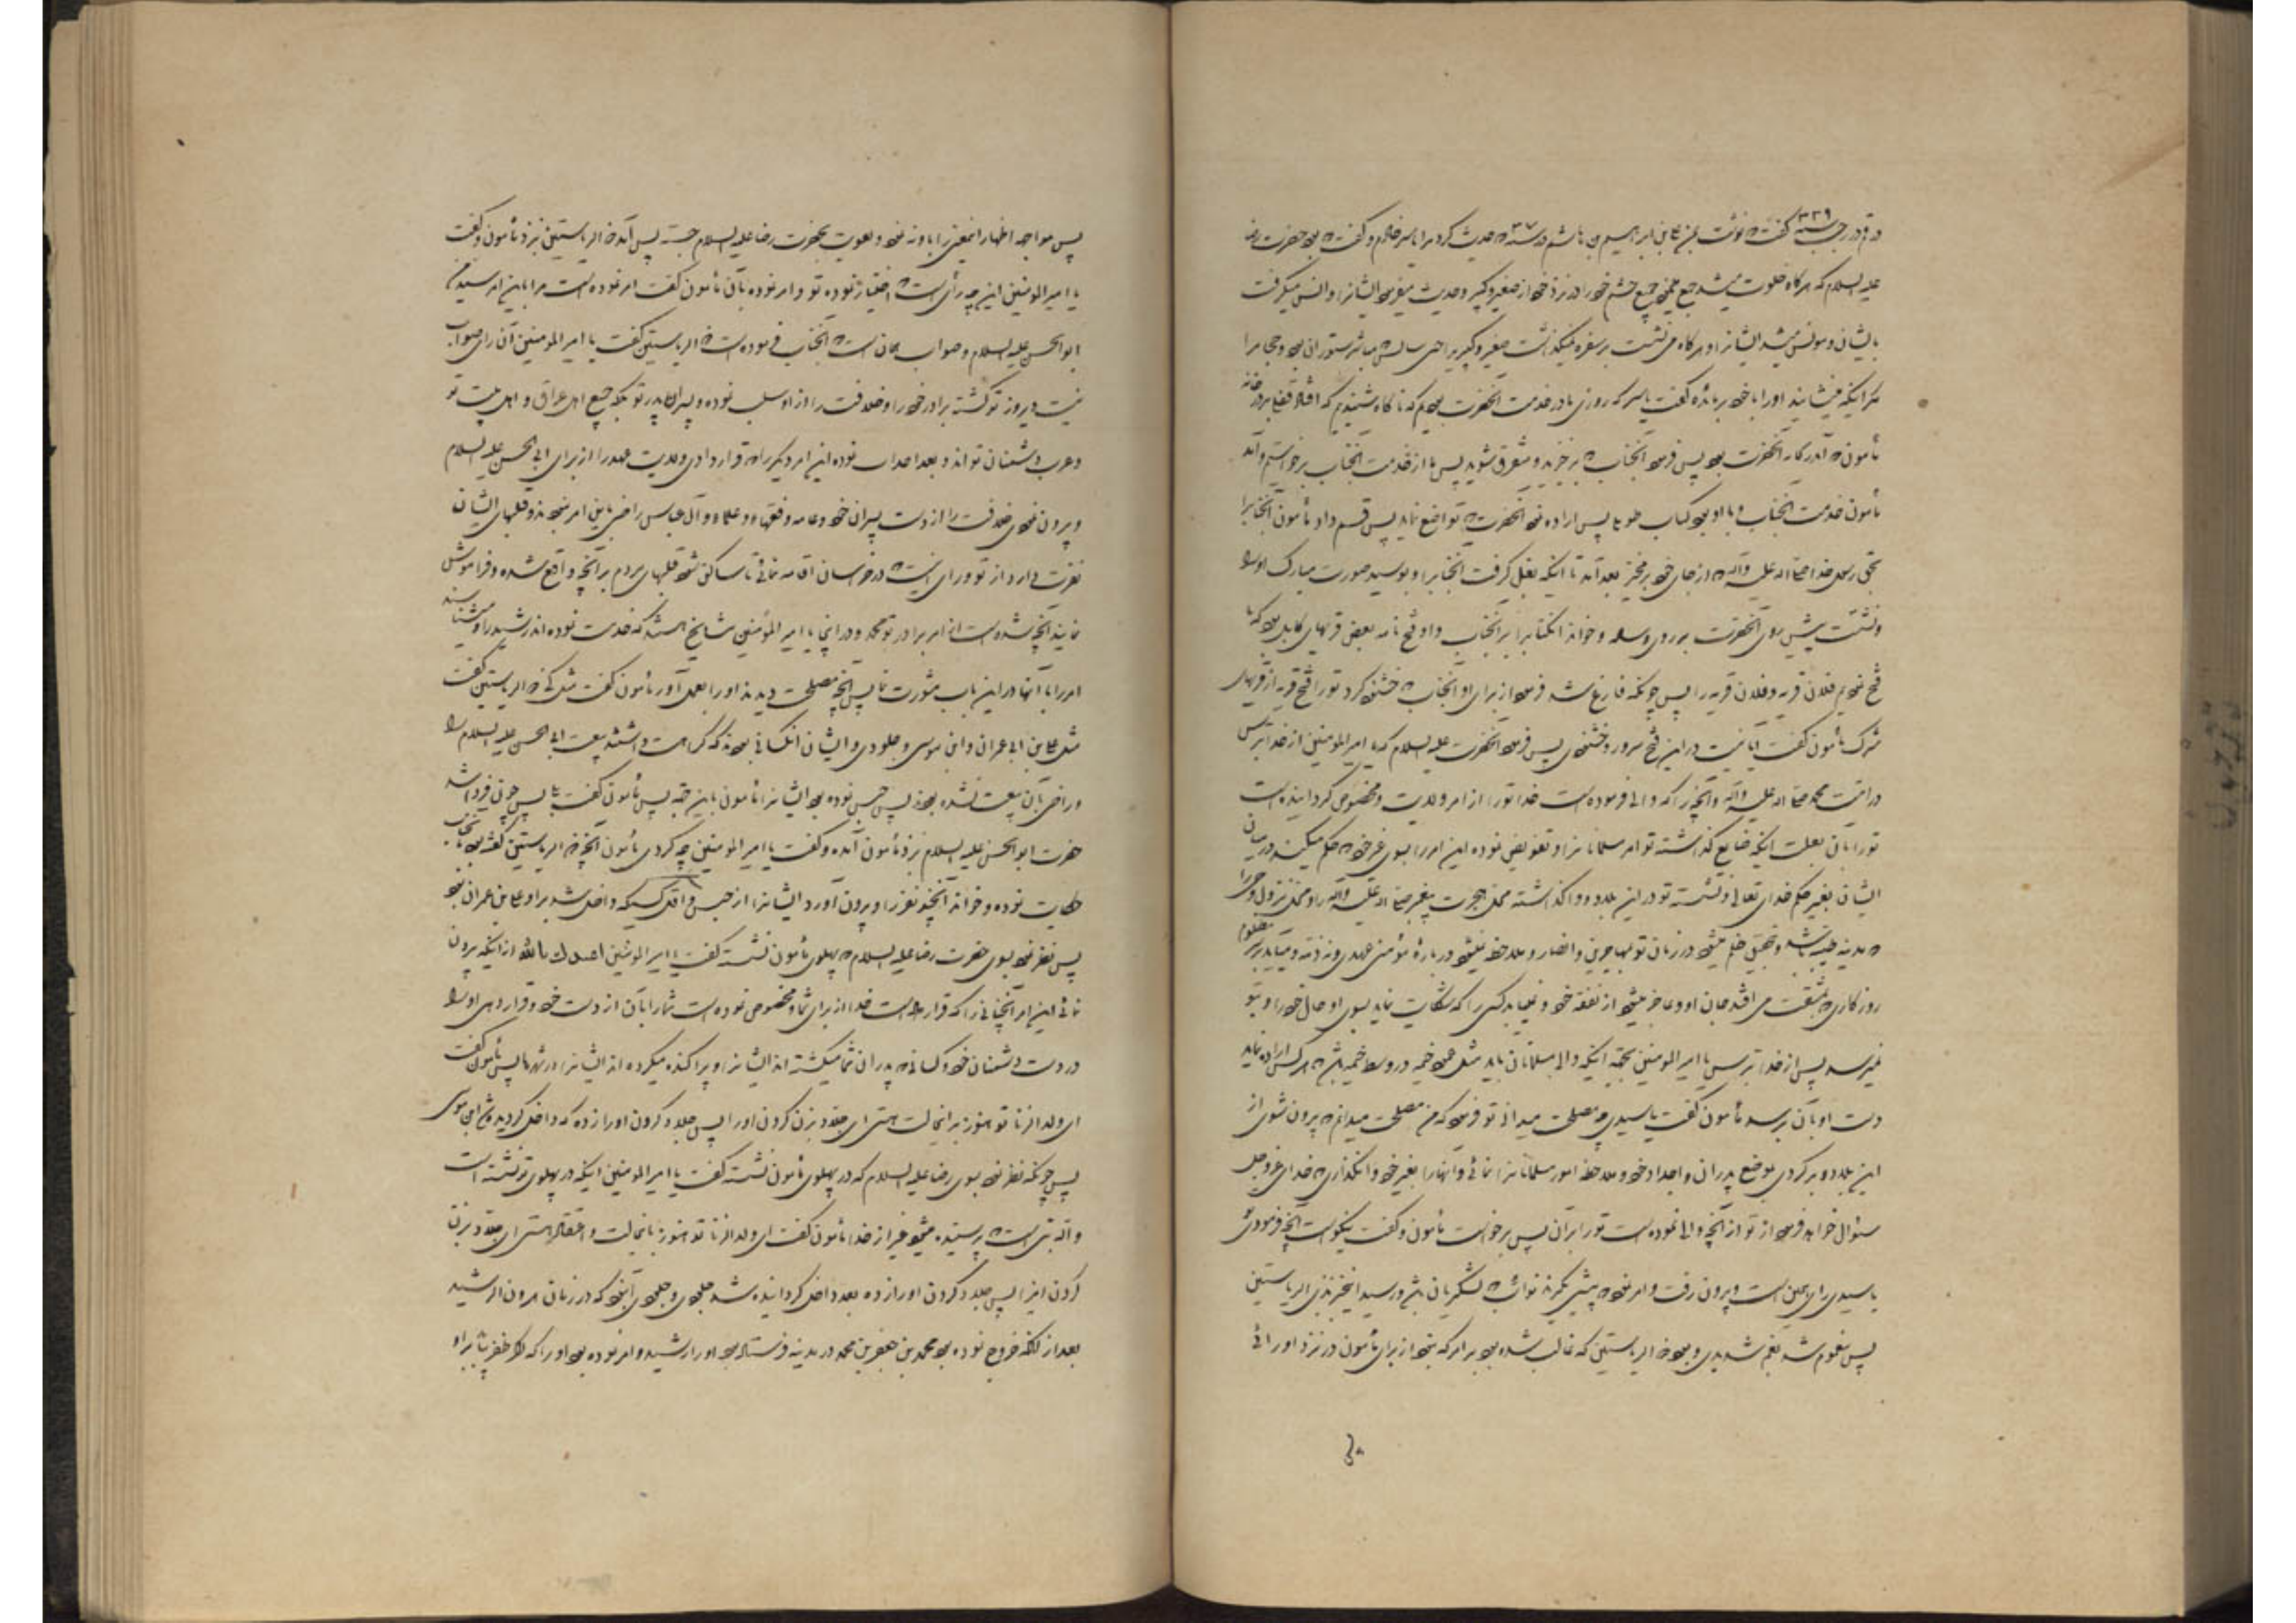 در قم در رجب سنه ۳۳۹ گفت که نوشت بمن علی بن ابراهیم بن هاشم در سنه ۳۰۷ که حدیث کرد مرا یاسر خادم و گفت که بود حضرت رضا
علیه السلام که هرگاه خلوت میشد جمع میخود جمیع حشم خود را در نزد خود از صغیر و کبیر و حدیث میفرمود ایشانرا و انس میگرفت
بایشان و مونس میشد ایشانرا و هرگاه می نشست بر سفره نمیگذاشت صغیر و کبیر را حتی سایس که مباشر ستوران بود و حجام را
مگر اینکه مینشانید او را با خود بر مائده گفت یاسر که روزی ما در خدمت آنحضرت بودیم که ناگاه شنیدیم که افتاد قفل در خانه
مأمون که در آنحضرت بود پس فرمود آنجناب که برخیزید و متفرق شوید پس ما از خدمت آنجناب برخواستیم و آمد
مأمون خدمت آنجناب و با او بود کتاب طویلی پس اراده نمود آنحضرت که تواضع نماید پس قسم داد مأمون آنجنابرا
بحق رسول خدا صلی الله علیه و آله که از جای خود برمخیز بعد آمد تا اینکه بغل گرفت آنجنابرا و بوسید صورت مبارک او را
و نشست پیش روی آنحضرت بر روی وساده و خواند آنکتابرا بر آنجناب و او فتح نامه بعض قریهای کابل بود که ما
فتح نمودیم فلان قریه و فلان قریه را پس چونکه فارغ شد فرمود از برای او آنجناب که خشنود کرد تو را فتح قریه از قریهای
شرک مأمون گفت آیا نیست در این فتح سرور و خشنودی پس فرمود آنحضرت علیه السلام که یا امیر المومنین از خدا بترس
در امت محمد صلی الله علیه و آله و آنچیزی را که والی فرموده است خدا تو را از امر ولایت و مخصوص گردانیده است
تو را بآن بعلت اینکه ضایع گذاشته تو امر مسلمانانرا و تفویض نموده این امر را بسوی غیر خود که حکم میکند در میان
ایشان بغیر حکم خدای تعالی و نشسته تو در این بلاد و واگذاشته محل هجرت پیغمبر صلی الله علیه و آله را و محل نزول وحی را
که مدینه طیبه باشد و بتحقیق ظلم میشود در زمان تو بمهاجرین و انصار و ملاحظه نمیشود در باره مؤمنی عهدی و نه ذمه و میآید بر مظلوم
روزگاری که بمشقت می افتد جان او و عاجز میشود از نفقه خود و نمییابد کسی را که شکایت نماید بسوی او حال خود را و بتو
نمیرسد پس از خدا بترس یا امیر المومنین بجهة اینکه والی مسلمانان باید مثل عمود خیمه در وسط خیمه باشد که هر کس اراده نماید
دست او بآن برسد مأمون گفت یا سیدی چه مصلحت میدانی تو فرمود که من مصلحت میدانم که بیرون شوی از
این بلاد و برگردی بموضع پدران و اجداد خود و ملاحظه امور مسلمانانرا نمائی و آنها را بغیر خود وانگذاری که خدای عزوجل
سئوال خواهد فرمود از تو از آنچه والی نموده است تو را بر آن پس برخواست مأمون و گفت نیکوست آنچه فرمودی
یا سیدی رای همین است و بیرون رفت و امر نمود که پیش بگیرند نوائب که لشگریان باشد و رسید اینخبر بذی الریاستین
پس مغموم شد بغم شدیدی و بود ذو الریاستین که غالب شده بود بر امر که نبود از برای مأمون در نزد او رائی
پس مواجه اظهار اینمعنی را با او نه نمود و تقویت بحضرت رضا علیه السلام جسته پس آمد ذو الریاستین نزد مأمون و گفت
یا امیر المومنین این چه رأی است که اختیار نموده تو و امر نموده بآن مأمون گفت امر نموده است مرا باین امر سید من
ابو الحسن علیه السلام و صواب همان است که آنجناب فرموده است ذو الریاستین گفت یا امیر المومنین آن رای صواب
نیست دیروز تو کشته برادر خود را و خلافت را از او سلب نموده و پسران پدر تو بلکه جمیع اهل عراق و اهل بیت تو
و عرب دشمنان تواند و بعد احداث نموده این امر دیگر را که قرار دادی ولایت عهد را از برای ابی الحسن علیه السلام
و بیرون نمودی خلافت را از دست پسران خود و عامه و فقهاء و علماء و آل عباس راضی باین امر نبودند و قلبهای ایشان
نفرت دارد از تو و رای اینست که در خراسان اقامه نمائی تا ساکن شود قلبهای مردم بر آنچه واقع شده و فراموش
نمایند آنچه شده است از امر برادر تو محمد و در اینجا یا امیر المؤمنین مشایخ هستند که خدمت نموده اند رشید را و میشناسند
امر را با آنها در این باب مشورت نما پس آنچه مصلحت دیدند او را بعمل آور مأمون گفت مثل کی ذو الریاستین گفت
مثل علی بن ابی عمران و ابن موسی و جلودی و ایشان آنکسانی بودند که کراهت داشتند بیعت ابی الحسن علیه السلام را
و راضی بآن بیعت نشده بودند پس حبس نموده بود ایشانرا مأمون باین جهة پس مأمون گفت بلی پس چون فردا شد
حضرت ابو الحسن علیه السلام نزد مأمون آمده و گفت یا امیر المومنین چه کردی مأمون آنچه ذو الریاستین گفته بود بآنجناب
حکایت نموده و خواند آنچند نفر را و بیرون آورد ایشانرا از حبس و اول کسیکه داخل شد بر او علی بن عمران بود
پس نظر نمود بسوی حضرت رضا علیه السلام که پهلوی مأمون نشسته گفت یا امیر المومنین اعیذک بالله از اینکه بیرون
نمائی این امر آنچنانی را که قرار داده است خدا از برای شما و مخصوص نموده است شما را بآن از دست خود و قرار دهی او را
در دست دشمنان خود و کسانی که پدران شما میکشته اند ایشانرا و پراکنده میکرده اند ایشانرا در شهرها پس مأمون گفت
ای ولد الزنا تو هنوز بر اینحالت هستی ای جلاد بزن گردن او را پس جلاد گردن او را زده که داخل گردید ابن موسی
پس چونکه نظر نمود بسوی رضا علیه السلام که در پهلوی مأمون نشسته گفت یا امیر المومنین اینکه در پهلوی تو نشسته است
والله بتی است که پرستیده میشود غیر از خدا مأمون گفت ای ولد الزنا تو هنوز باینحالت و اعتقاد هستی ای جلاد بزن
گردن این را پس جلاد گردن او را زده بعد داخل گردانیده شد جلودی و جلودی آن بود که در زمان هرون الرشید
بعد از آنکه خروج نموده بود محمد بن جعفر بن محمد در مدینه فرستاده بود او را رشید و امر نموده بود او را که اگر ظفر یابد بر او